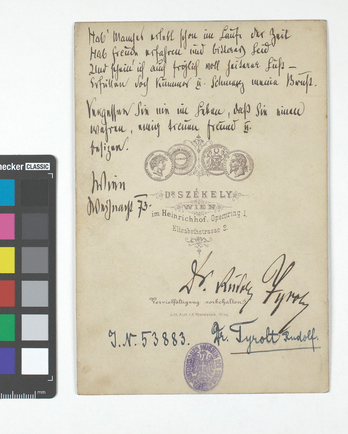 Hab' Manches erlebt schon im Laufe der Zeit
Hab Freude erfahren und bitteres Leid
Und schein' ich auch fröhlich voll heiterer Lust –
Erfüllen doch Kummer u. Schmerz meine Brust.
Vergessen Sie nie im Leben, daß Sie einen
wahren, treuen Freund
besitzen.
Wien
Weihnacht 73.
Dr. SZÉKELY
WIEN
im Heinrichhof, Opernring 1
Elisabethstrasse 2.
Dr. Rudolf Tyrolt
Vervielfältigung vorbehalten.
J. N. 53883.
Dr. Tyrolt Rudolf.